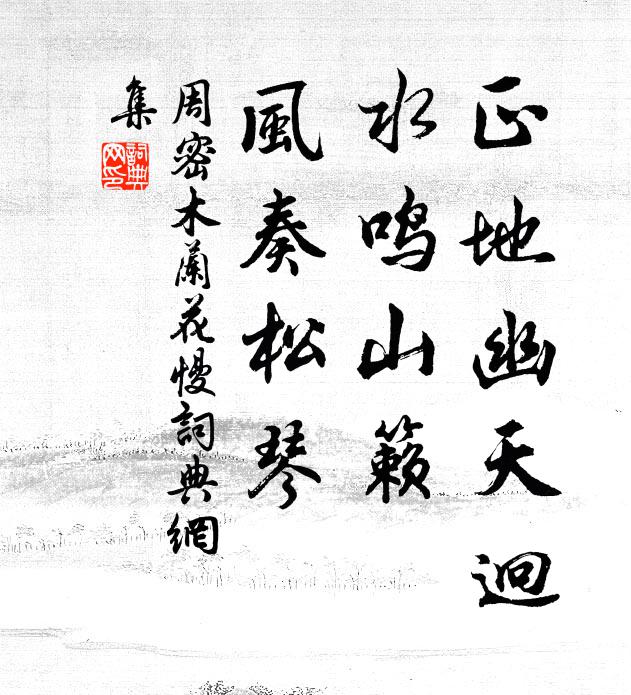 正地幽天迥
水鸣山籁
風奏松琴
周密木蘭花慢詞典網
集
詞典
网印